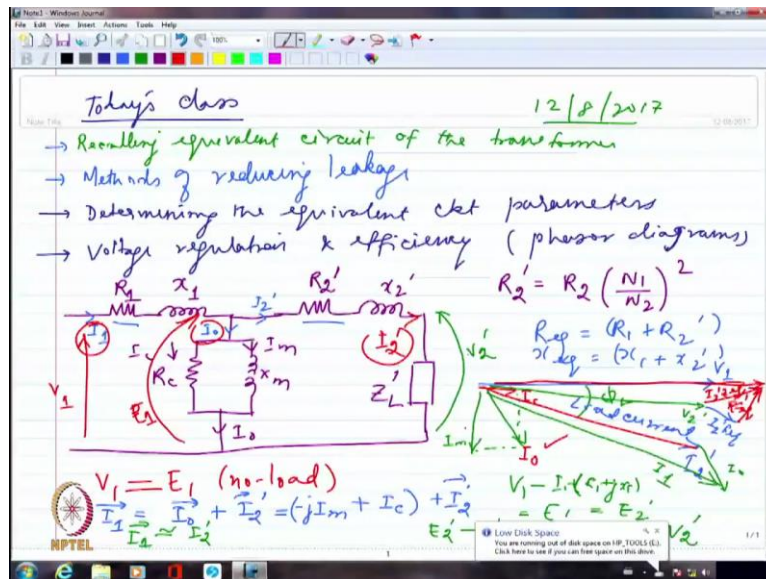 Note1 - Windows Journal
File Edit View Insert Actions Tools Help
100%
B I
Note Title
12-08-2017
Today's class
12/8/2017
→ Recalling equivalent circuit of the transformer
→ Methods of reducing leakage
→ Determining the equivalent ckt parameters
→ Voltage regulation & efficiency (phasor diagrams)
R1 x1 I2' R2' x2'
R2' = R2 (N1/N2)^2
I1 I0 Im I2' V2'
Req = (R1 + R2')
xeq = (x1 + x2')
V1 Rc xm ZL'
E1 I0
V1
Ic V2'
Load current
Im I0 I1 I2' I0
V1 = E1 (no-load)
V1 - I1(r1+jx1)
I1 = I0 + I2' = (-jIm + Ic) + I2'
= E1 = E2'
I1 ≃ I2'
E2' - V2'
NPTEL
Low Disk Space
You are running out of disk space on HP_TOOLS (E:).
Click here to see if you can free space on this drive.
1
1/1